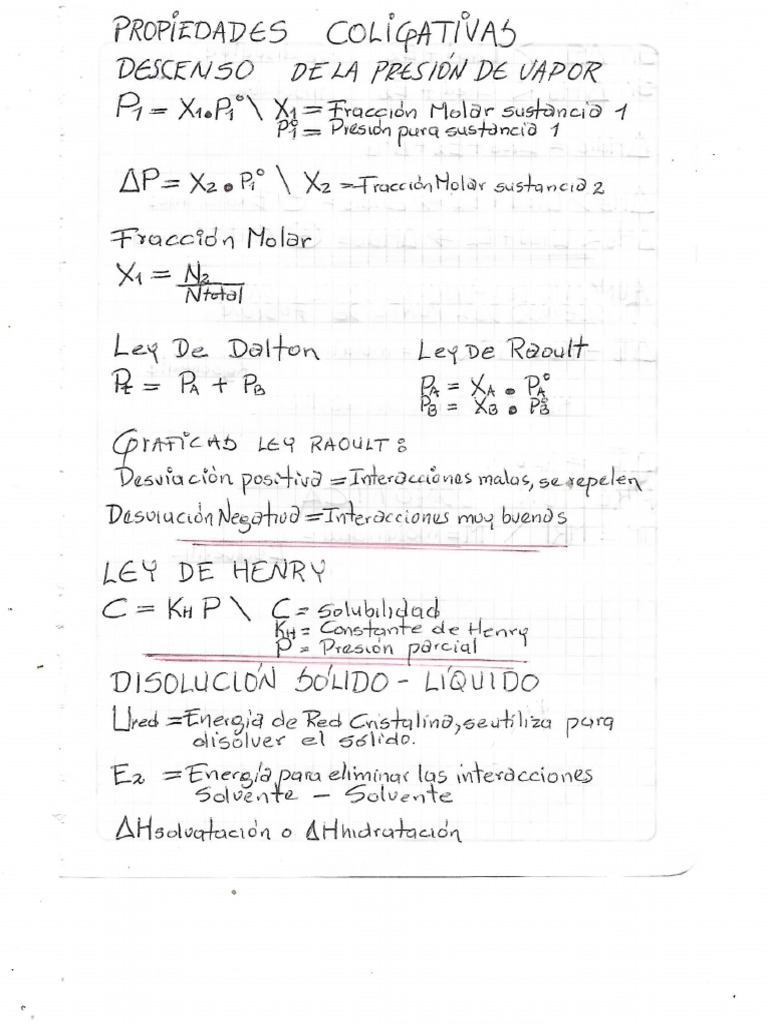 PROPIEDADES COLIGATIVAS
DESCENSO DE LA PRESIÓN DE VAPOR
P1 = X1•P1° \ X1 = Fracción Molar sustancia 1
P1° = Presion pura sustancia 1
ΔP = X2 • P1° \ X2 = Fracción Molar sustancia 2
Fracción Molar
X1 = N2
Ntotal
Ley De Dalton
Pt = PA + PB
Ley De Raoult
PA = XA • PA°
PB = XB • PB°
GRAFICAS LEY RAOULT:
Desviación positiva = Interacciones malas, se repelen
Desviación Negativa = Interacciones muy buenas
LEY DE HENRY
C = KH P \ C = Solubilidad
KH = Constante de Henry
P = Presión parcial
DISOLUCIÓN SÓLIDO - LÍQUIDO
Ured = Energía de Red Cristalina, se utiliza para
disolver el sólido.
E2 = Energía para eliminar las interacciones
Solvente - Solvente
ΔHsolvatación o ΔHhidratación